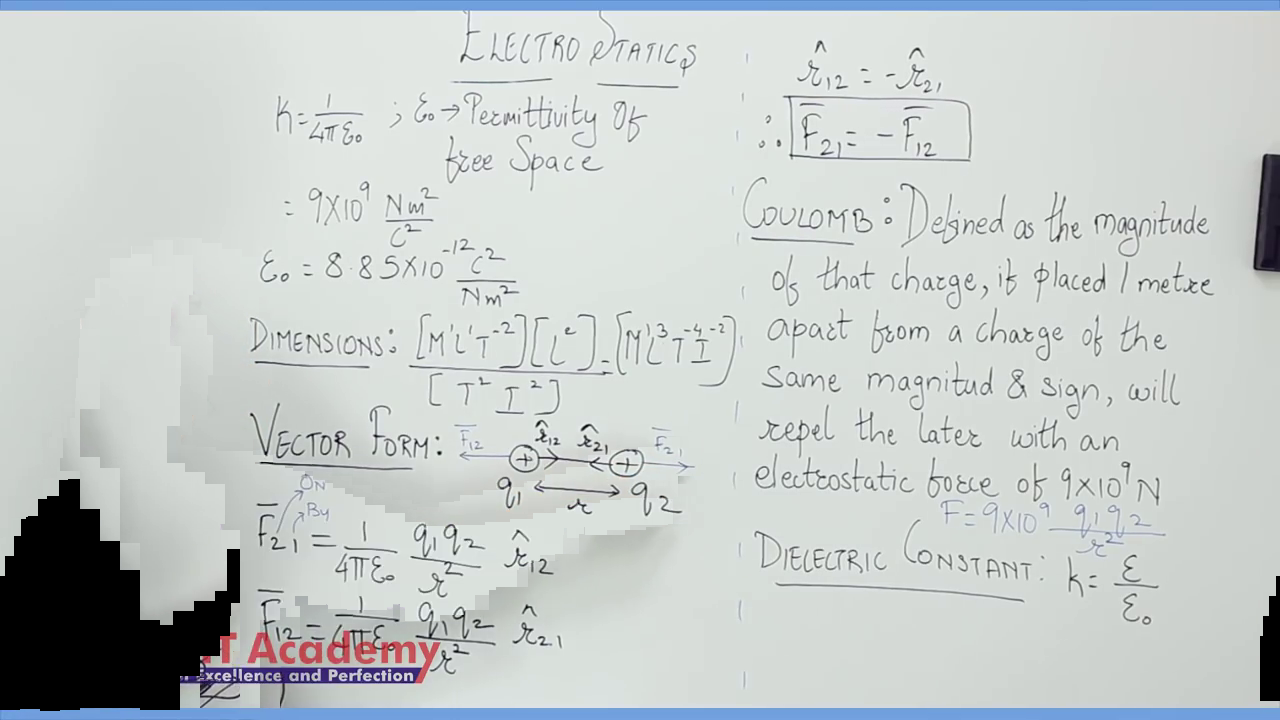 ELECTROSTATICS
K = 1/4πε₀ ; ε₀ → Permittivity Of
free Space
= 9×10⁹ Nm²/C²
ε₀ = 8.85×10⁻¹² C²/Nm²
DIMENSIONS: [M¹L¹T⁻²][L²]/[T² I²] = [M¹L³T⁻⁴I⁻²]
VECTOR FORM: F̅₁₂ r̂₁₂ r̂₂₁ F̅₂₁
+ +
q₁ r q₂
ON
By
F̅₂₁ = 1/4πε₀ q₁q₂/r² r̂₁₂
F̅₁₂ = 1/4πε₀ q₁q₂/r² r̂₂₁
T Academy
Excellence and Perfection
r̂₁₂ = -r̂₂₁
∴ F̅₂₁ = - F̅₁₂
COULOMB: Defined as the magnitude
of that charge, if placed 1 metre
apart from a charge of the
same magnitud & sign, will
repel the later with an
electrostatic force of 9×10⁹N
F = 9×10⁹ q₁q₂/r²
DIELECTRIC CONSTANT: k = ε/ε₀